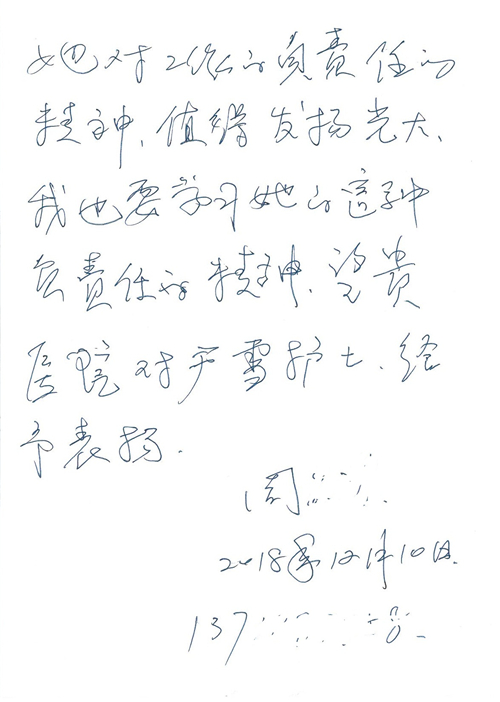 她对工作的负责任的
精神、值得发扬光大、
我也要学习她的这种
负责任的精神、望贵
医院对严雪护士、给
予表扬.
周
2018年12月10日.
137